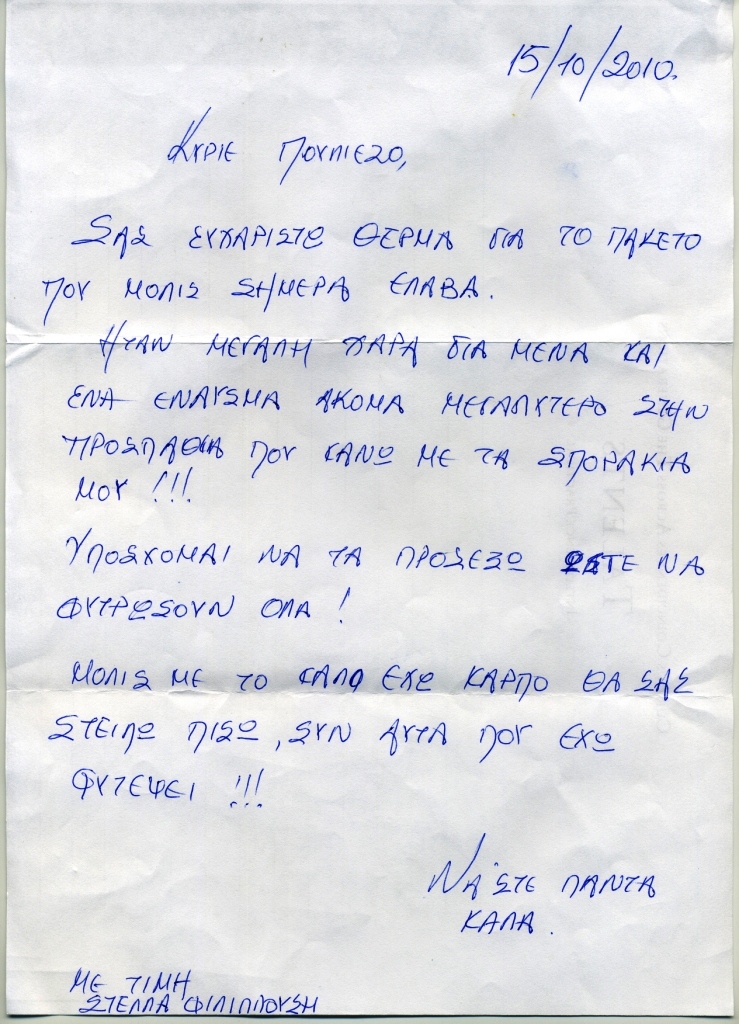 15/10/2010.
ΚΥΡΙΕ ΠΟΥΛΙΕΖΟ,
ΣΑΣ ΕΥΧΑΡΙΣΤΩ ΘΕΡΜΑ ΓΙΑ ΤΟ ΠΑΚΕΤΟ
ΠΟΥ ΜΟΛΙΣ ΣΗΜΕΡΑ ΕΛΑΒΑ.
ΗΤΑΝ ΜΕΓΑΛΗ ΧΑΡΑ ΓΙΑ ΜΕΝΑ ΚΑΙ
ΕΝΑ ΕΝΑΥΣΜΑ ΑΚΟΜΑ ΜΕΓΑΛΥΤΕΡΟ ΣΤΗΝ
ΠΡΟΣΠΑΘΕΙΑ ΠΟΥ ΚΑΝΩ ΜΕ ΤΑ ΣΠΟΡΑΚΙΑ
ΜΟΥ !!!
ΥΠΟΣΧΟΜΑΙ ΝΑ ΤΑ ΠΡΟΣΕΞΩ ΩΣΤΕ ΝΑ
ΦΥΤΡΩΣΟΥΝ ΟΛΑ !
ΜΟΛΙΣ ΜΕ ΤΟ ΚΑΛΟ ΕΧΩ ΚΑΡΠΟ ΘΑ ΣΑΣ
ΣΤΕΙΛΩ ΠΙΣΩ, ΣΥΝ ΑΥΤΑ ΠΟΥ ΕΧΩ
ΦΥΤΕΨΕΙ !!!
ΝΑ 'ΣΤΕ ΠΑΝΤΑ
ΚΑΛΑ.
ΜΕ ΤΙΜΗ
ΣΤΕΛΛΑ